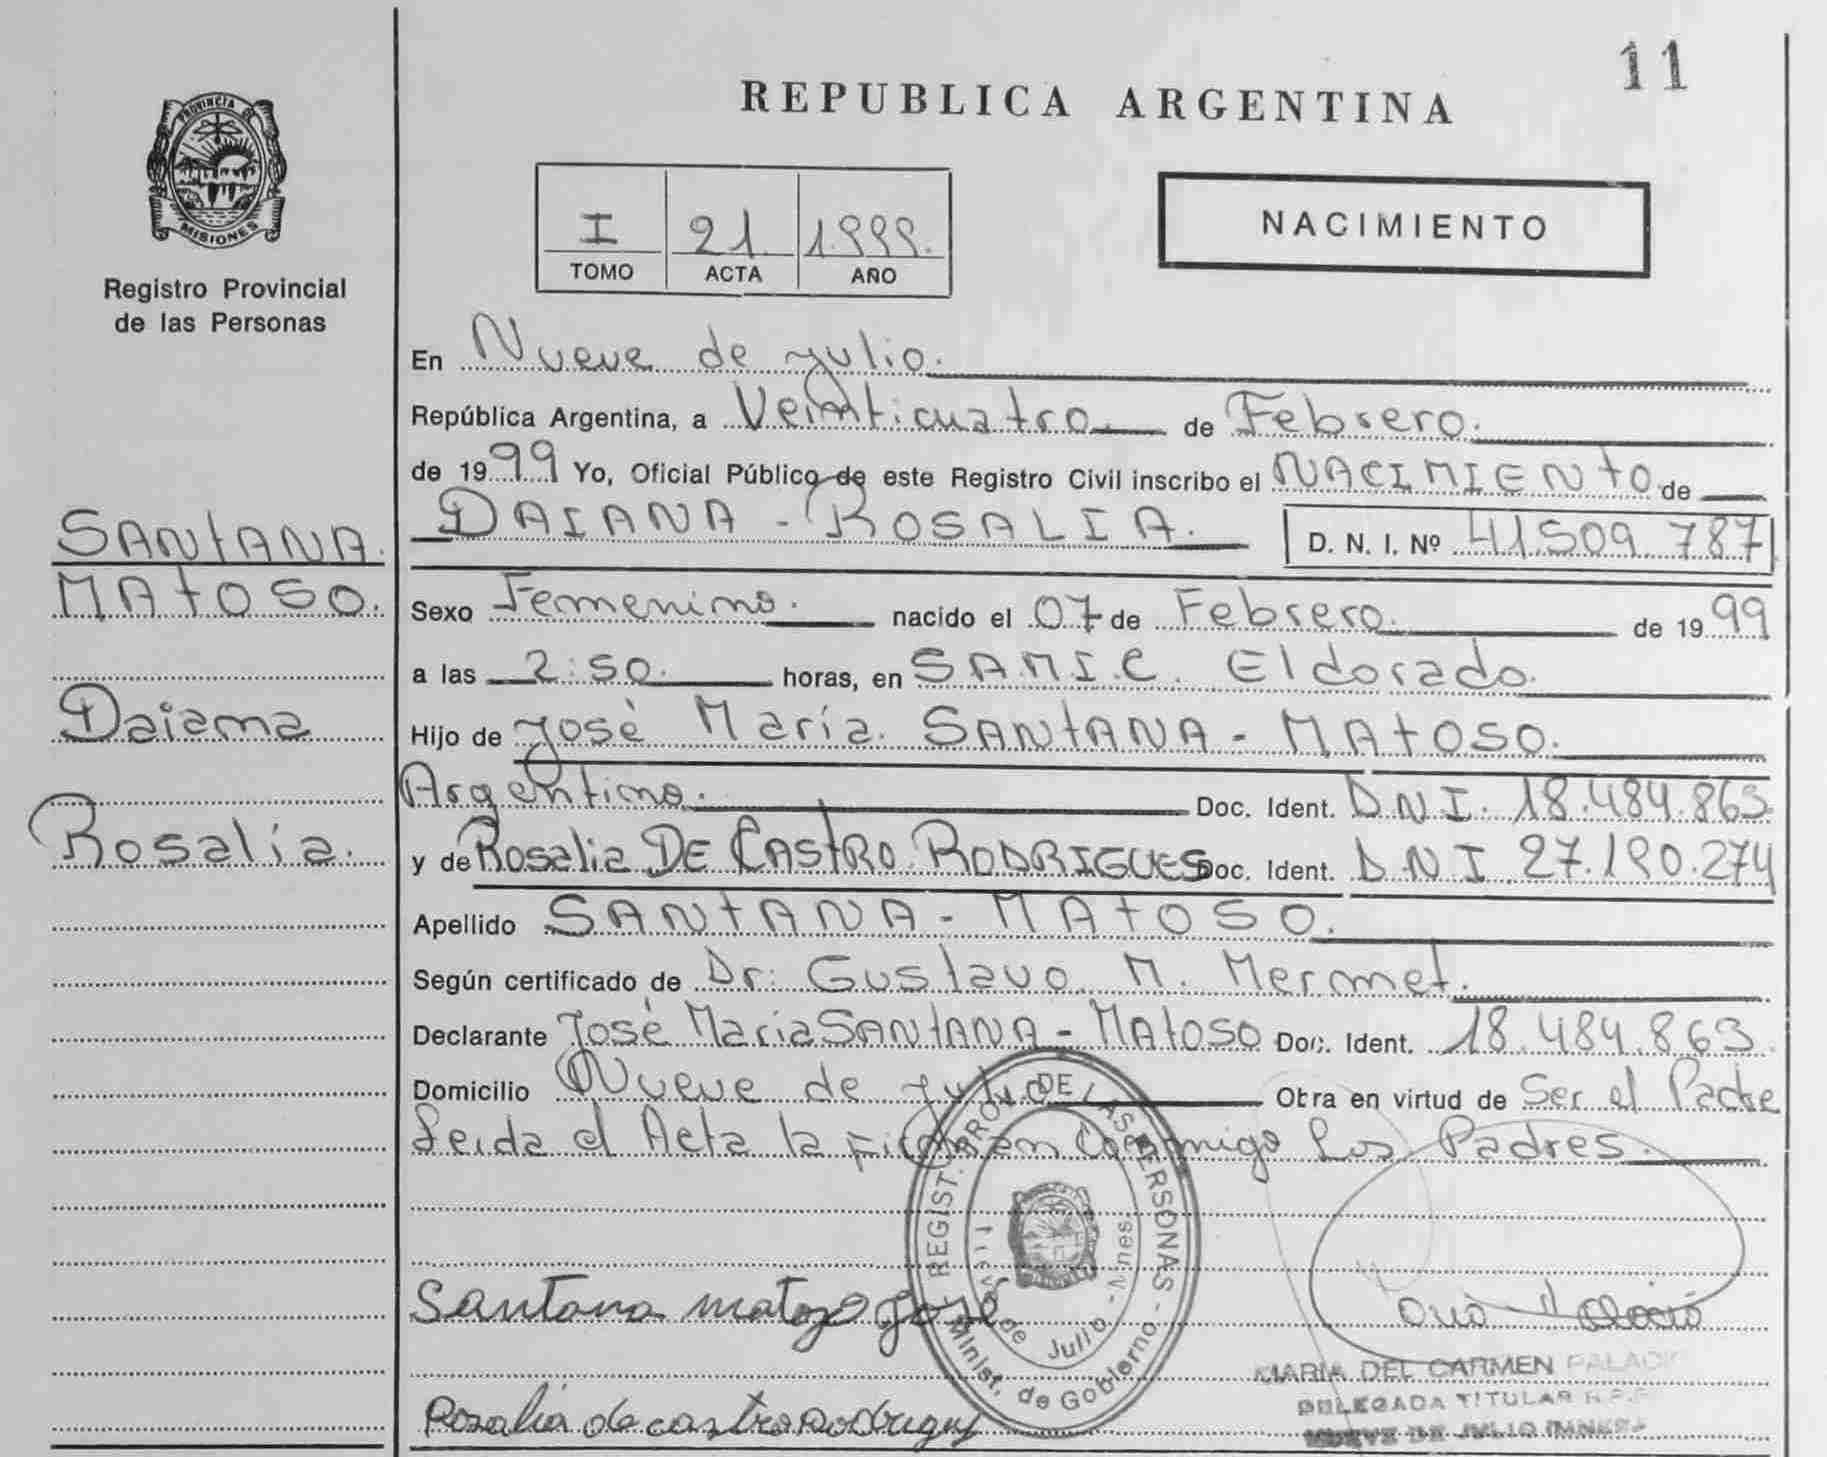 11
REPUBLICA ARGENTINA
PROVINCIA DE
MISIONES
Registro Provincial
de las Personas
I 21. 1.999.
TOMO ACTA AÑO
NACIMIENTO
En Nueve de Julio.
República Argentina, a Veinticuatro de Febrero.
de 1999 Yo, Oficial Público de este Registro Civil inscribo el NACIMIENTO de
DAIANA - ROSALIA. D. N. I. Nº 41.509.787
SANTANA.
MATOSO.
Daiana
Rosalía.
Sexo Femenino. nacido el 07 de Febrero. de 1999
a las 2:50. horas, en S.A.M.I.C. Eldorado.
Hijo de José María. SANTANA - MATOSO.
Argentino. Doc. Ident. D.N.I. 18.484.863
y de Rosalia DE CASTRO RODRIGUES Doc. Ident. D.N.I 27.190.274
Apellido SANTANA - MATOSO.
Según certificado de Dr. Gustavo M. Mermet.
Declarante José María SANTANA - MATOSO Doc. Ident. 18.484.863.
Domicilio Nueve de Julio Obra en virtud de Ser el Padre
Leida el Acta la firman Conmigo Los Padres.
REGIST. PROV. DE LAS PERSONAS
Minist. de Gobierno
Nueve de Julio - Mnes
Santana matozo José
Rosalia de castro Rodrigues
MARIA DEL CARMEN PALACIO
DELEGADA TITULAR R.P.P.
NUEVE DE JULIO (MNES.)